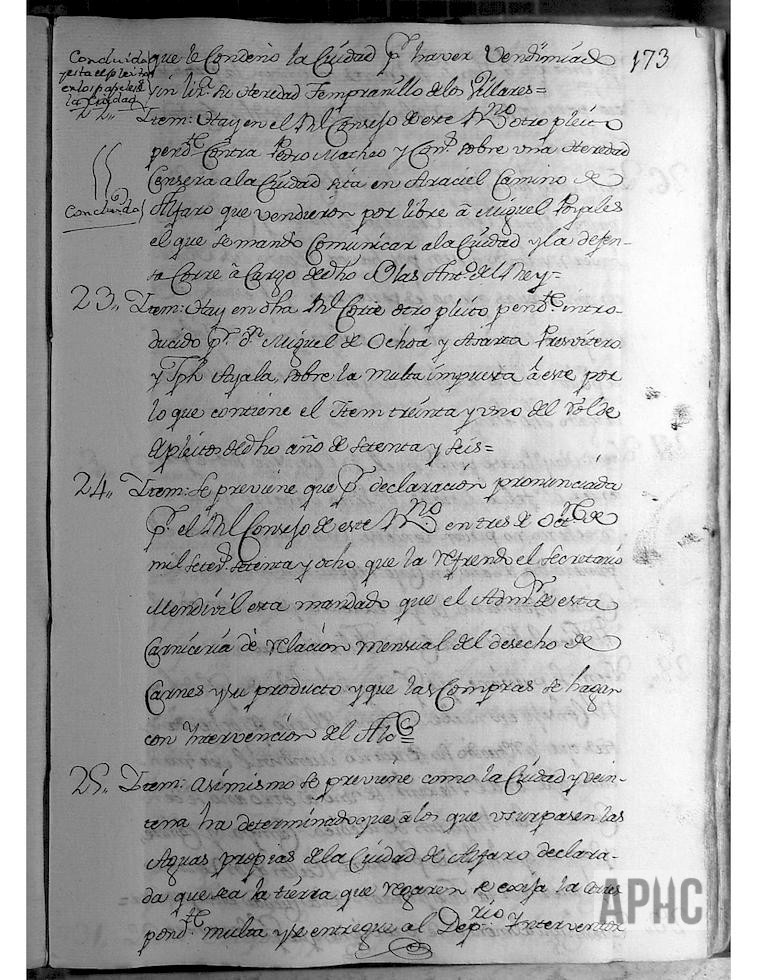 173
Concluido
y esta el pleito
en los papeles de
la Ciudad
que le Condeno la Ciudad pr. haver Vendimiado
sin liza. su Heredad Tempranillo de los Villares=
22,, Item: Hay en el Rl Consejo de este Rno otro pleito
pendte. Contra Pedro Matheo y Conse. sobre una Heredad
Censera a la Ciudad sita en Araciel Camino de
Concluido
Alfaro que vendieron por libre â Miguel Poyales
el que se mando Comunicar a la Ciudad y la defen-
sa Corre â Cargo de dho Blas Anto. del Rey=
23,, Item: Hay en dha Rl Corte otro pleito pendte. intro-
ducido pr. dn. Miguel de Ochoa y Azarta Presvitero
y Jph Ayala, sobre la multa impuesta â este por
lo que contiene el Item treinta y uno del Rolde
de pleitos de dho año de setenta y seis=
24,, Item: Se previene que pr. declaración pronunciada
pr. el Rl Consejo de este Rno en tres de Octre. de
mil setezs. setenta y ocho que la refrendo el secretario
Mendivil esta mandado que el Admor. de esta
Carniceria dè relacion mensual del desecho de
Carnes y su producto y que las Compras se hagan
con Intervención del Alce=
25,, Item: Asimismo se previene como la Ciudad y vein-
tena ha determinado que â los que usurpasen las
Aguas propias de la Ciudad de Alfaro declara-
da que sea la tierra que regaren se exija la corres
pondte. multa y se entregue al Deposrio Interventor
APHC